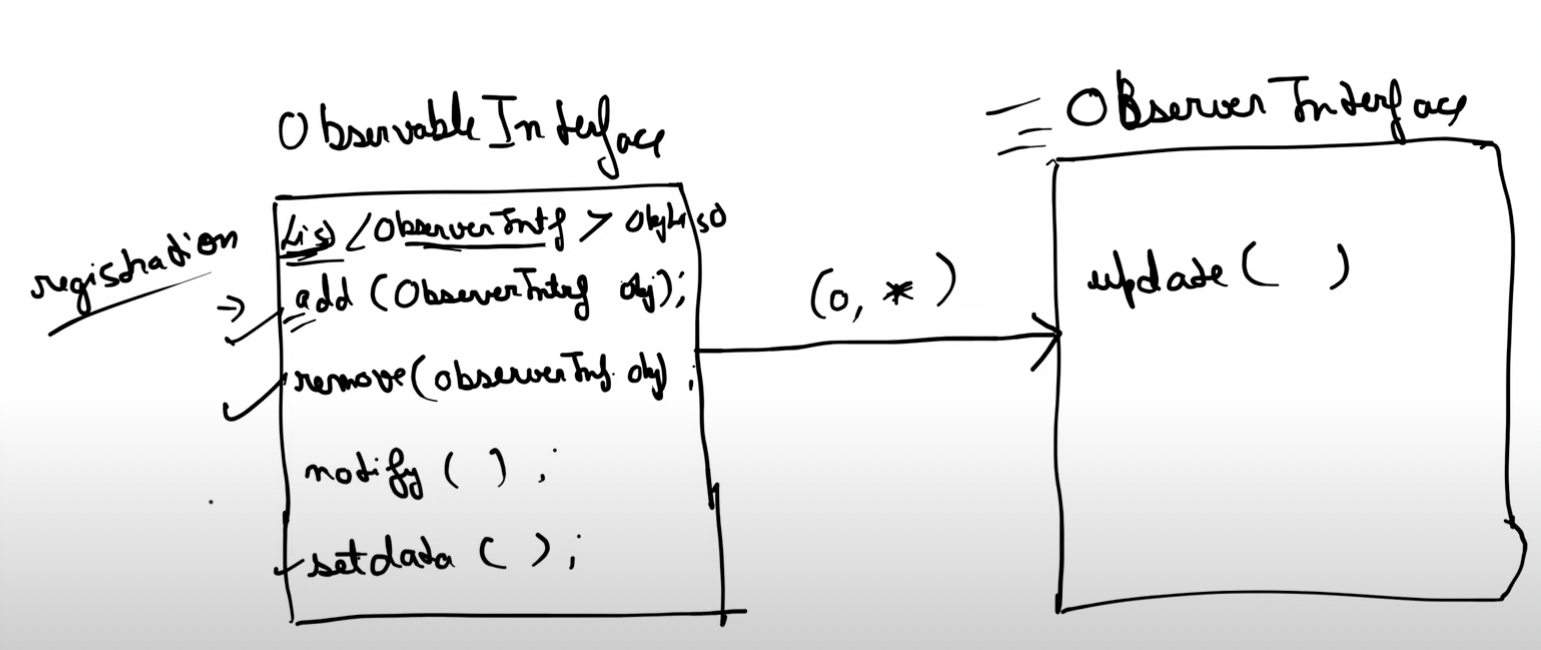 Observable Interface
List <ObserverIntf> ObjList
registration
add (ObserverIntrf obj);
remove(observerInf. obj) ;
notify ( ) ;
setdata ( ) ;
(0, *)
OBserver Interface
update ( )